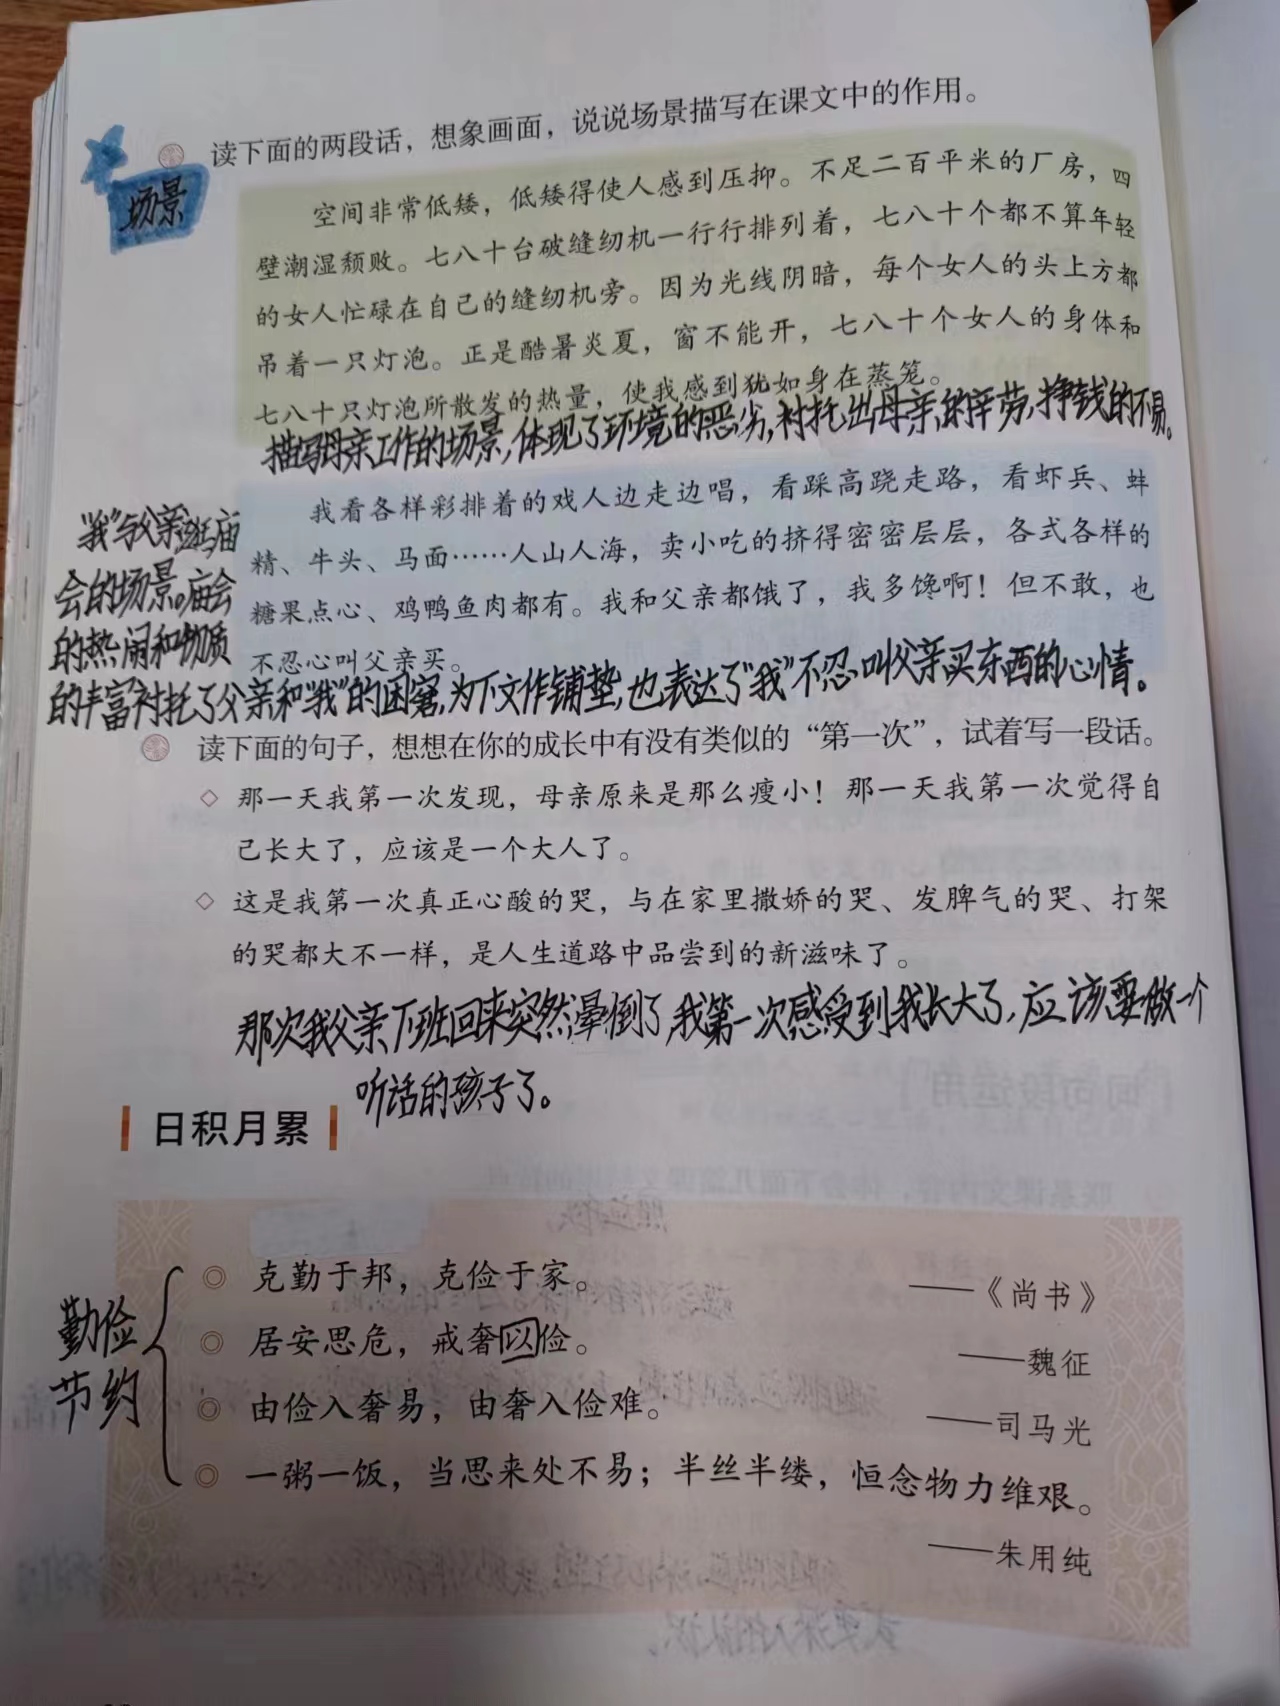 读下面的两段话，想象画面，说说场景描写在课文中的作用。
场景
空间非常低矮，低矮得使人感到压抑。不足二百平米的厂房，四
壁潮湿颓败。七八十台破缝纫机一行行排列着，七八十个都不算年轻
的女人忙碌在自己的缝纫机旁。因为光线阴暗，每个女人的头上方都
吊着一只灯泡。正是酷暑炎夏，窗不能开，七八十个女人的身体和
七八十只灯泡所散发的热量，使我感到犹如身在蒸笼。
描写母亲工作的场景，体现了环境的恶劣，衬托出母亲的辛劳，挣钱的不易。
我看各样彩排着的戏人边走边唱，看踩高跷走路，看虾兵、蚌
精、牛头、马面……人山人海，卖小吃的挤得密密层层，各式各样的
糖果点心、鸡鸭鱼肉都有。我和父亲都饿了，我多馋啊！但不敢，也
不忍心叫父亲买。
“我”与父亲逛庙
会的场景。庙会
的热闹和物质
的丰富衬托了父亲和“我”的困窘，为下文作铺垫，也表达了“我”不忍叫父亲买东西的心情。
读下面的句子，想想在你的成长中有没有类似的“第一次”，试着写一段话。
◇ 那一天我第一次发现，母亲原来是那么瘦小！那一天我第一次觉得自
己长大了，应该是一个大人了。
◇ 这是我第一次真正心酸的哭，与在家里撒娇的哭、发脾气的哭、打架
的哭都大不一样，是人生道路中品尝到的新滋味了。
那次我父亲下班回来突然晕倒了，我第一次感受到我长大了，应该要做一个
听话的孩子了。
日积月累
勤俭
节约
◎ 克勤于邦，克俭于家。 ——《尚书》
◎ 居安思危，戒奢以俭。 ——魏征
◎ 由俭入奢易，由奢入俭难。 ——司马光
◎ 一粥一饭，当思来处不易；半丝半缕，恒念物力维艰。
——朱用纯